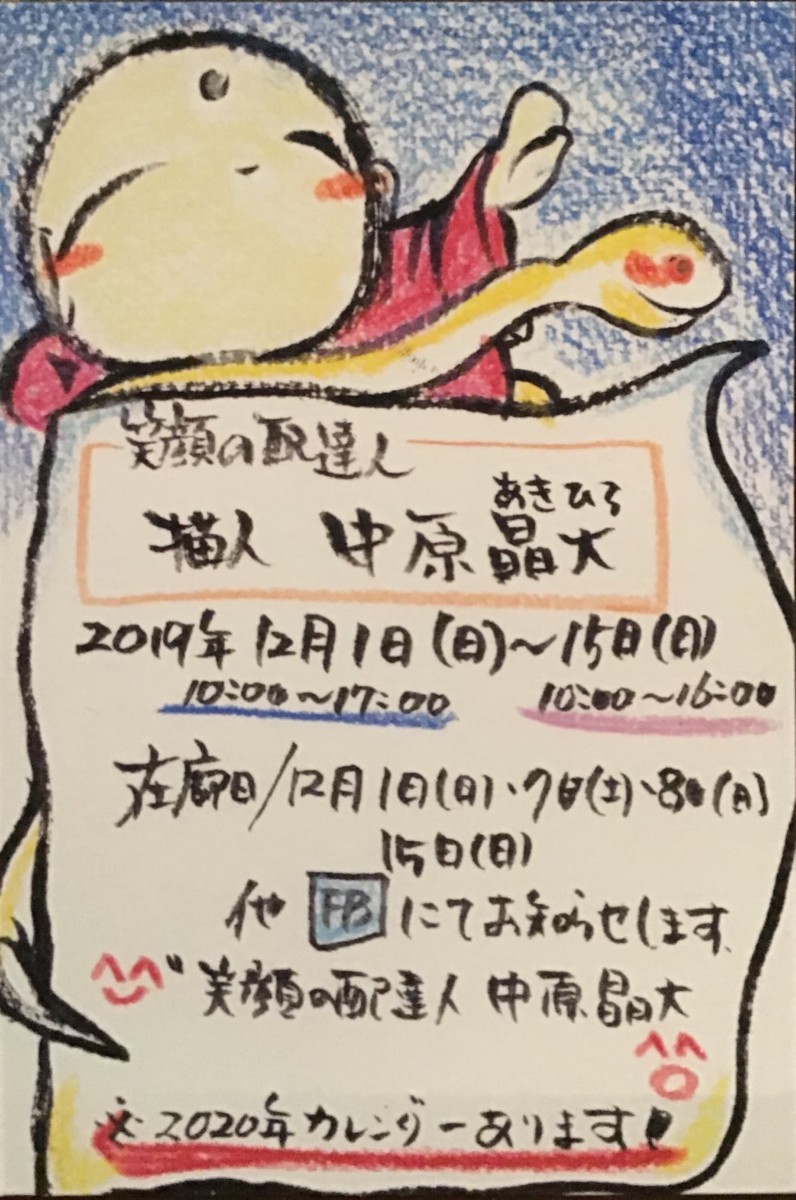 笑顔の配達人
あきひろ
描人 中原晶大
2019年12月1日(日)~15日(日)
10:00~17:00 10:00~16:00
在廊日/12月1日(日)、7日(土)、8日(日)
15日(日)
他 FB にてお知らせします。
笑顔の配達人 中原晶大
※2020年カレンダーあります!